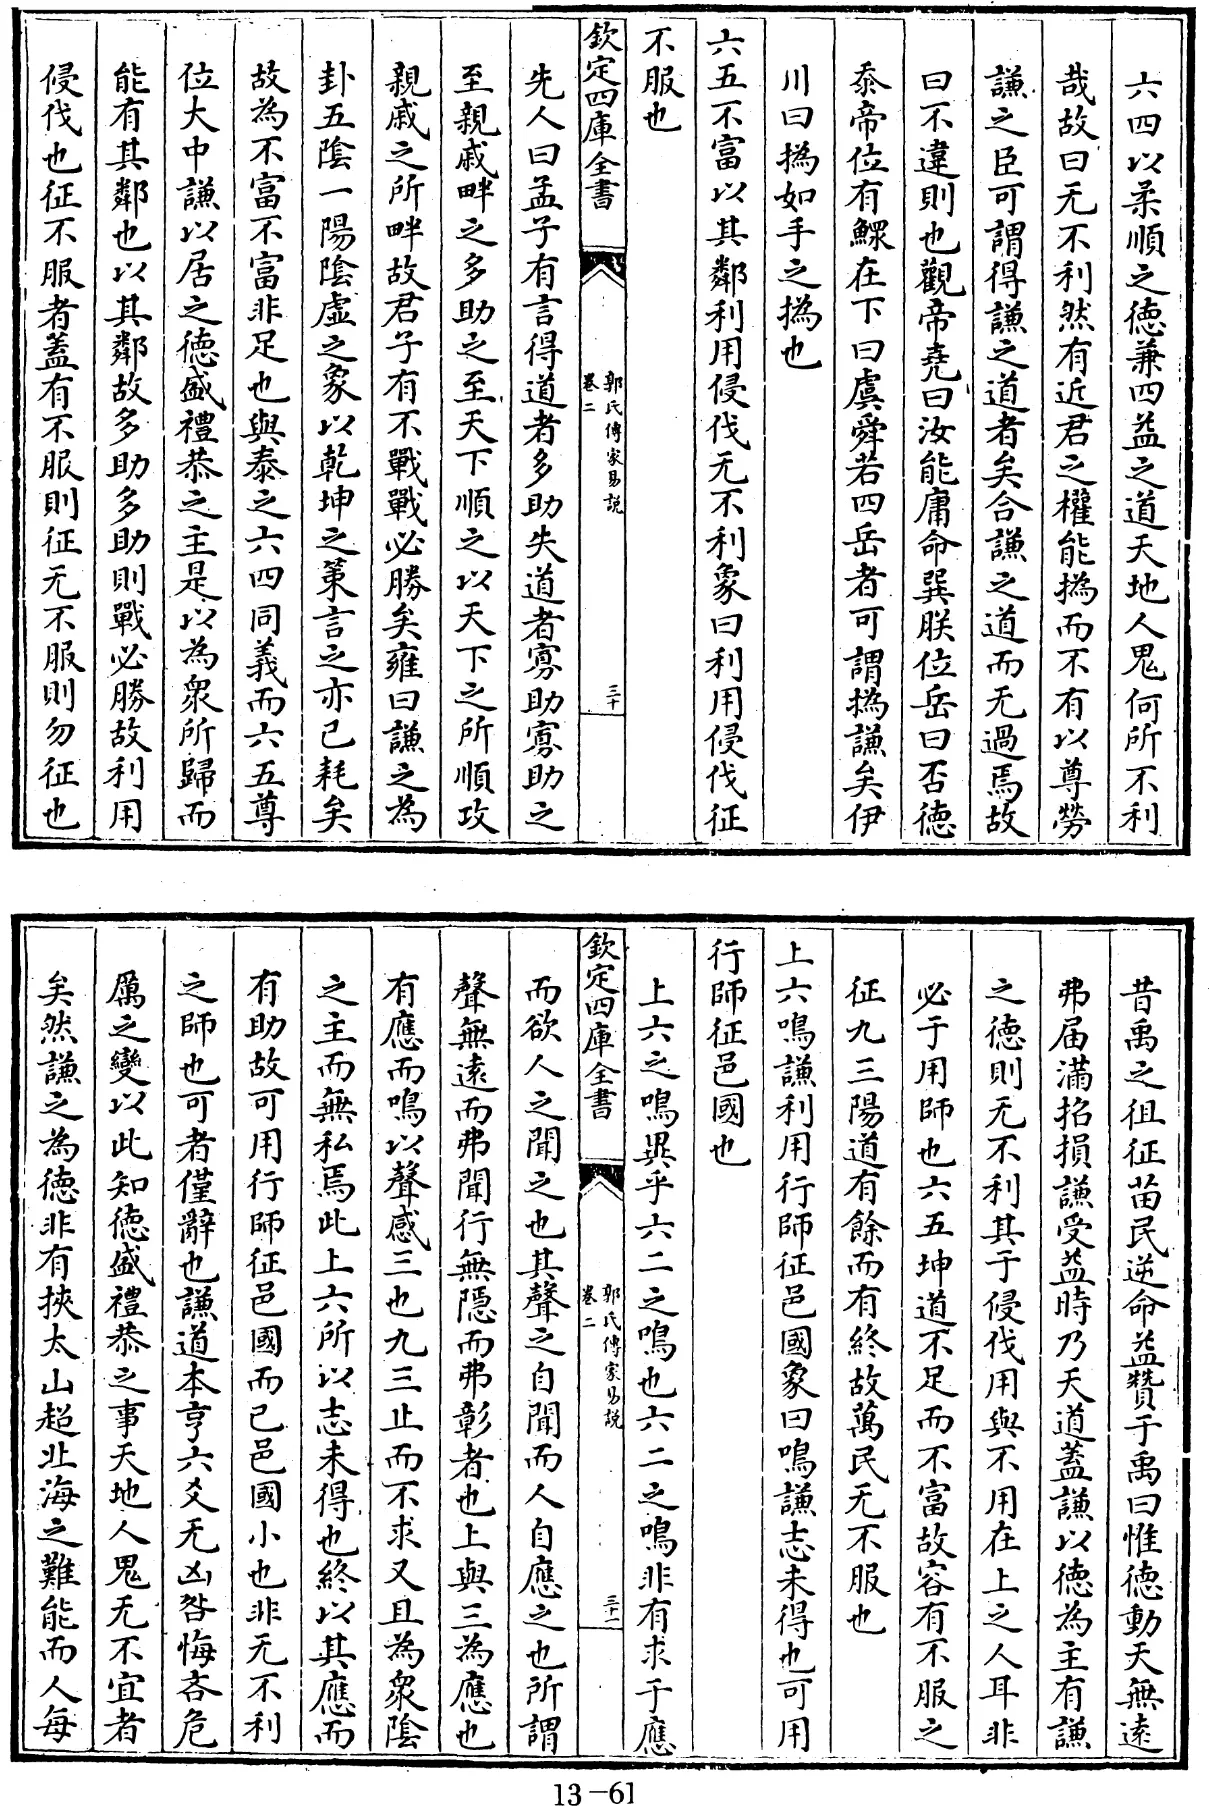 六四以柔順之德兼四益之道天地人鬼何所不利
哉故曰无不利然有近君之權能撝而不有以尊勞
謙之臣可謂得謙之道者矣合謙之道而无過焉故
曰不違則也觀帝堯曰汝能庸命巽朕位岳曰否德
忝帝位有鰥在下曰虞舜若四岳者可謂撝謙矣伊
川曰撝如手之撝也
六五不富以其鄰利用侵伐无不利象曰利用侵伐征
不服也
欽定四庫全書
郭氏傳家易說
卷二
三十
先人曰孟子有言得道者多助失道者寡助寡助之
至親戚畔之多助之至天下順之以天下之所順攻
親戚之所畔故君子有不戰戰必勝矣雍曰謙之為
卦五陰一陽陰虛之象以乾坤之策言之亦已耗矣
故為不富不富非足也與泰之六四同義而六五尊
位大中謙以居之德盛禮恭之主是以為衆所歸而
能有其鄰也以其鄰故多助多助則戰必勝故利用
侵伐也征不服者蓋有不服則征无不服則勿征也
昔禹之徂征苗民逆命益贊于禹曰惟德動天無遠
弗届滿招損謙受益時乃天道蓋謙以德為主有謙
之德則无不利其于侵伐用與不用在上之人耳非
必于用師也六五坤道不足而不富故容有不服之
征九三陽道有餘而有終故萬民无不服也
上六鳴謙利用行師征邑國象曰鳴謙志未得也可用
行師征邑國也
上六之鳴異乎六二之鳴也六二之鳴非有求于應
欽定四庫全書
郭氏傳家易說
卷二
三十一
而欲人之聞之也其聲之自聞而人自應之也所謂
聲無遠而弗聞行無隱而弗彰者也上與三為應也
有應而鳴以聲感三也九三止而不求又且為衆陰
之主而無私焉此上六所以志未得也終以其應而
有助故可用行師征邑國而已邑國小也非无不利
之師也可者僅辭也謙道本亨六爻无凶咎悔吝危
厲之變以此知德盛禮恭之事天地人鬼无不宜者
矣然謙之為德非有挾太山超北海之難能而人每
13-61